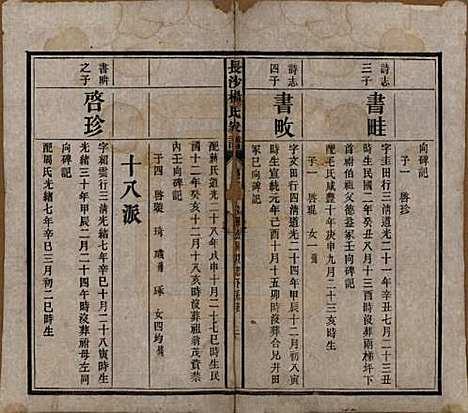 向碑記
子一 啓珍
詩志三子
書畦
字圭田行三清道光二十一年辛丑七月二十三丑
時生民國二年癸丑八月十三酉時沒葬雨梯圷下
首祔伯祖父德益冢壬向碑記
配毛氏咸豐十年庚申九月二十三亥時生
子一 啓琨 女一
詩志四子
書畋
字文田行四清道光二十四年甲辰十二月初六寅
時生宣統元年己酉十月十五卯時沒葬合兄井田
冢巳向碑記
長沙楊氏
配蔣氏道光二十八年戊申十月二十七巳時生民
國十二年癸亥十二月十八亥時沒葬祖翁茂貴禁
内壬向碑記
子四 啓璇 琦 琢 女四均
十八派
書畊之子
啓珍
字楫雲行三清光緒七年辛巳十月二十八寅時生
光緒三十年甲辰二月二十四午時沒葬祔母左同
配周氏光緒七年辛巳三月初二巳時生